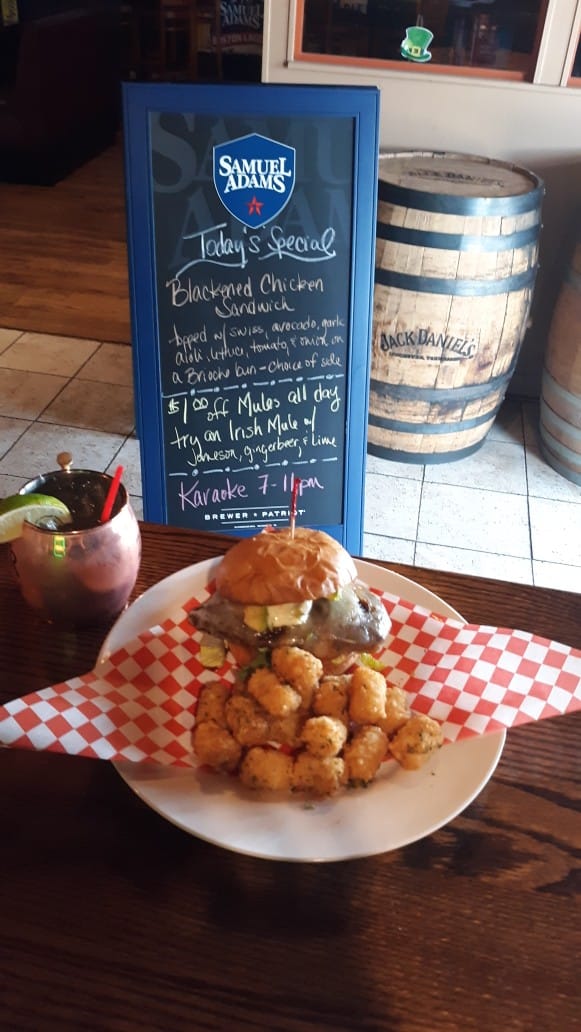 SAMUEL ADAMS
SAMUEL
ADAMS
Today's Special
Blackened Chicken
Sandwich
topped w/ swiss, avocado, garlic
aioli, lettuce, tomato, & onion on
a Brioche bun - choice of side
$1.00 off Mules all day
try an Irish Mule w/
Jameson, gingerbeer, & lime
Karaoke 7-11pm
BREWER ★ PATRIOT
JACK DANIEL'S
JACK DANIEL'S